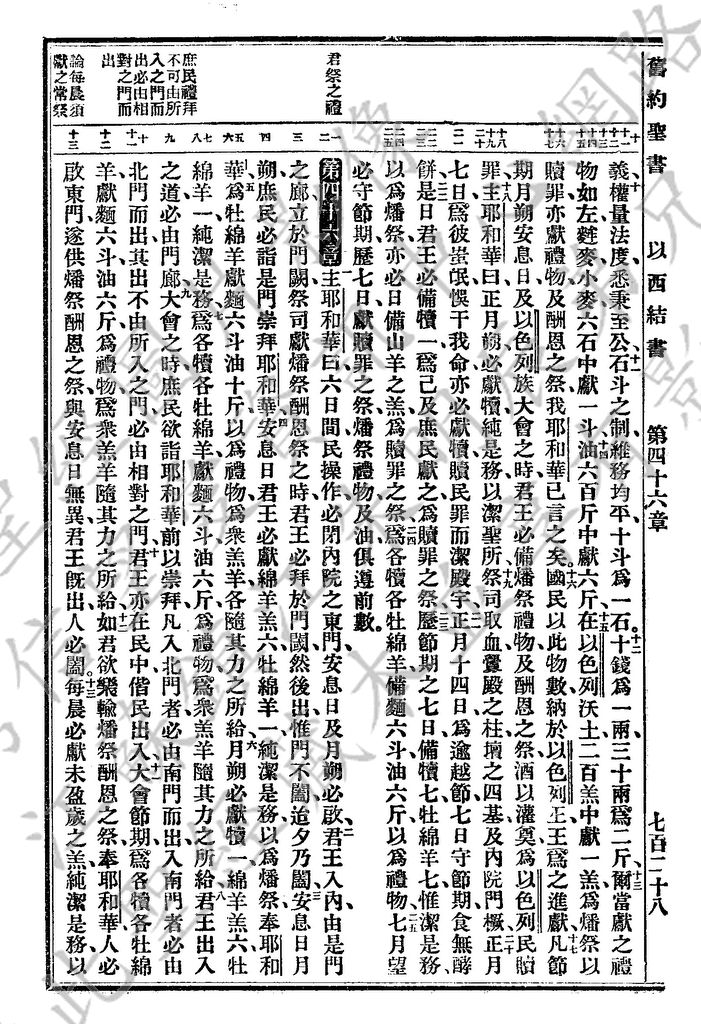 舊約聖書 以西結書 第四十六章 七百二十八
義權量法度悉秉至公石斗之制維務均平十斗爲一石十錢爲一兩三十兩爲二斤爾當獻之禮
物如左麰麥小麥六石中獻一斗油六百斤中獻六斤在以色列沃土二百羔中獻一羔爲燔祭以
贖罪亦獻禮物及酬恩之祭我耶和華已言之矣國民以此物數納於以色列王王爲之進獻凡節
期月朔安息日及以色列族大會之時君王必備燔祭禮物及酬恩之祭酒以灌奠爲以色列民贖
罪主耶和華曰正月朔必獻犢純是務以潔聖所祭司取血釁殿之柱壇之四基及內院門橛正月
七日爲彼蚩氓悞干我命亦必獻犢贖民罪而潔殿宇正月十四日爲逾越節七日守節期食無酵
餅是日君王必備犢一爲己及庶民獻之爲贖罪之祭歷節期之七日備犢七牡綿羊七惟潔是務
以爲燔祭亦必日備山羊之羔爲贖罪之祭爲各犢各牡綿羊備麵六斗油六斤以爲禮物七月望
必守節期歷七日獻贖罪之祭燔祭禮物及油俱遵前數
第四十六章 主耶和華曰六日間民操作必閉內院之東門安息日及月朔必啟君王入內由是門
之廊立於門闑祭司獻燔祭酬恩祭之時君王必拜於門閾然後出惟門不闔迨夕乃闔安息日月
朔庶民必詣是門崇拜耶和華安息日君王必獻綿羊羔六牡綿羊一純潔是務以爲燔祭奉耶和
華爲牡綿羊獻麵六斗油十斤以爲禮物爲衆羔羊各隨其力之所給月朔必獻犢一綿羊羔六牡
綿羊一純潔是務爲各犢各牡綿羊獻麵六斗油六斤爲禮物爲衆羔羊隨其力之所給君王出入
之道必由門廊大會之時庶民欲詣耶和華前以崇拜凡入北門者必由南門而出入南門者必由
北門而出其出不由所入之門必由相對之門君王亦在民中偕民出入大會節期爲各犢各牡綿
羊獻麵六斗油六斤爲禮物爲衆羔羊隨其力之所給如君欲樂輸燔祭酬恩之祭奉耶和華人必
啟東門遂供燔祭酬恩之祭與安息日無異君王旣出人必闔每晨必獻未盈歲之羔純潔是務以
君祭之禮
庶民禮拜
不可由所
入之門而
出必由相
對之門而
出
論每晨須
獻之常祭